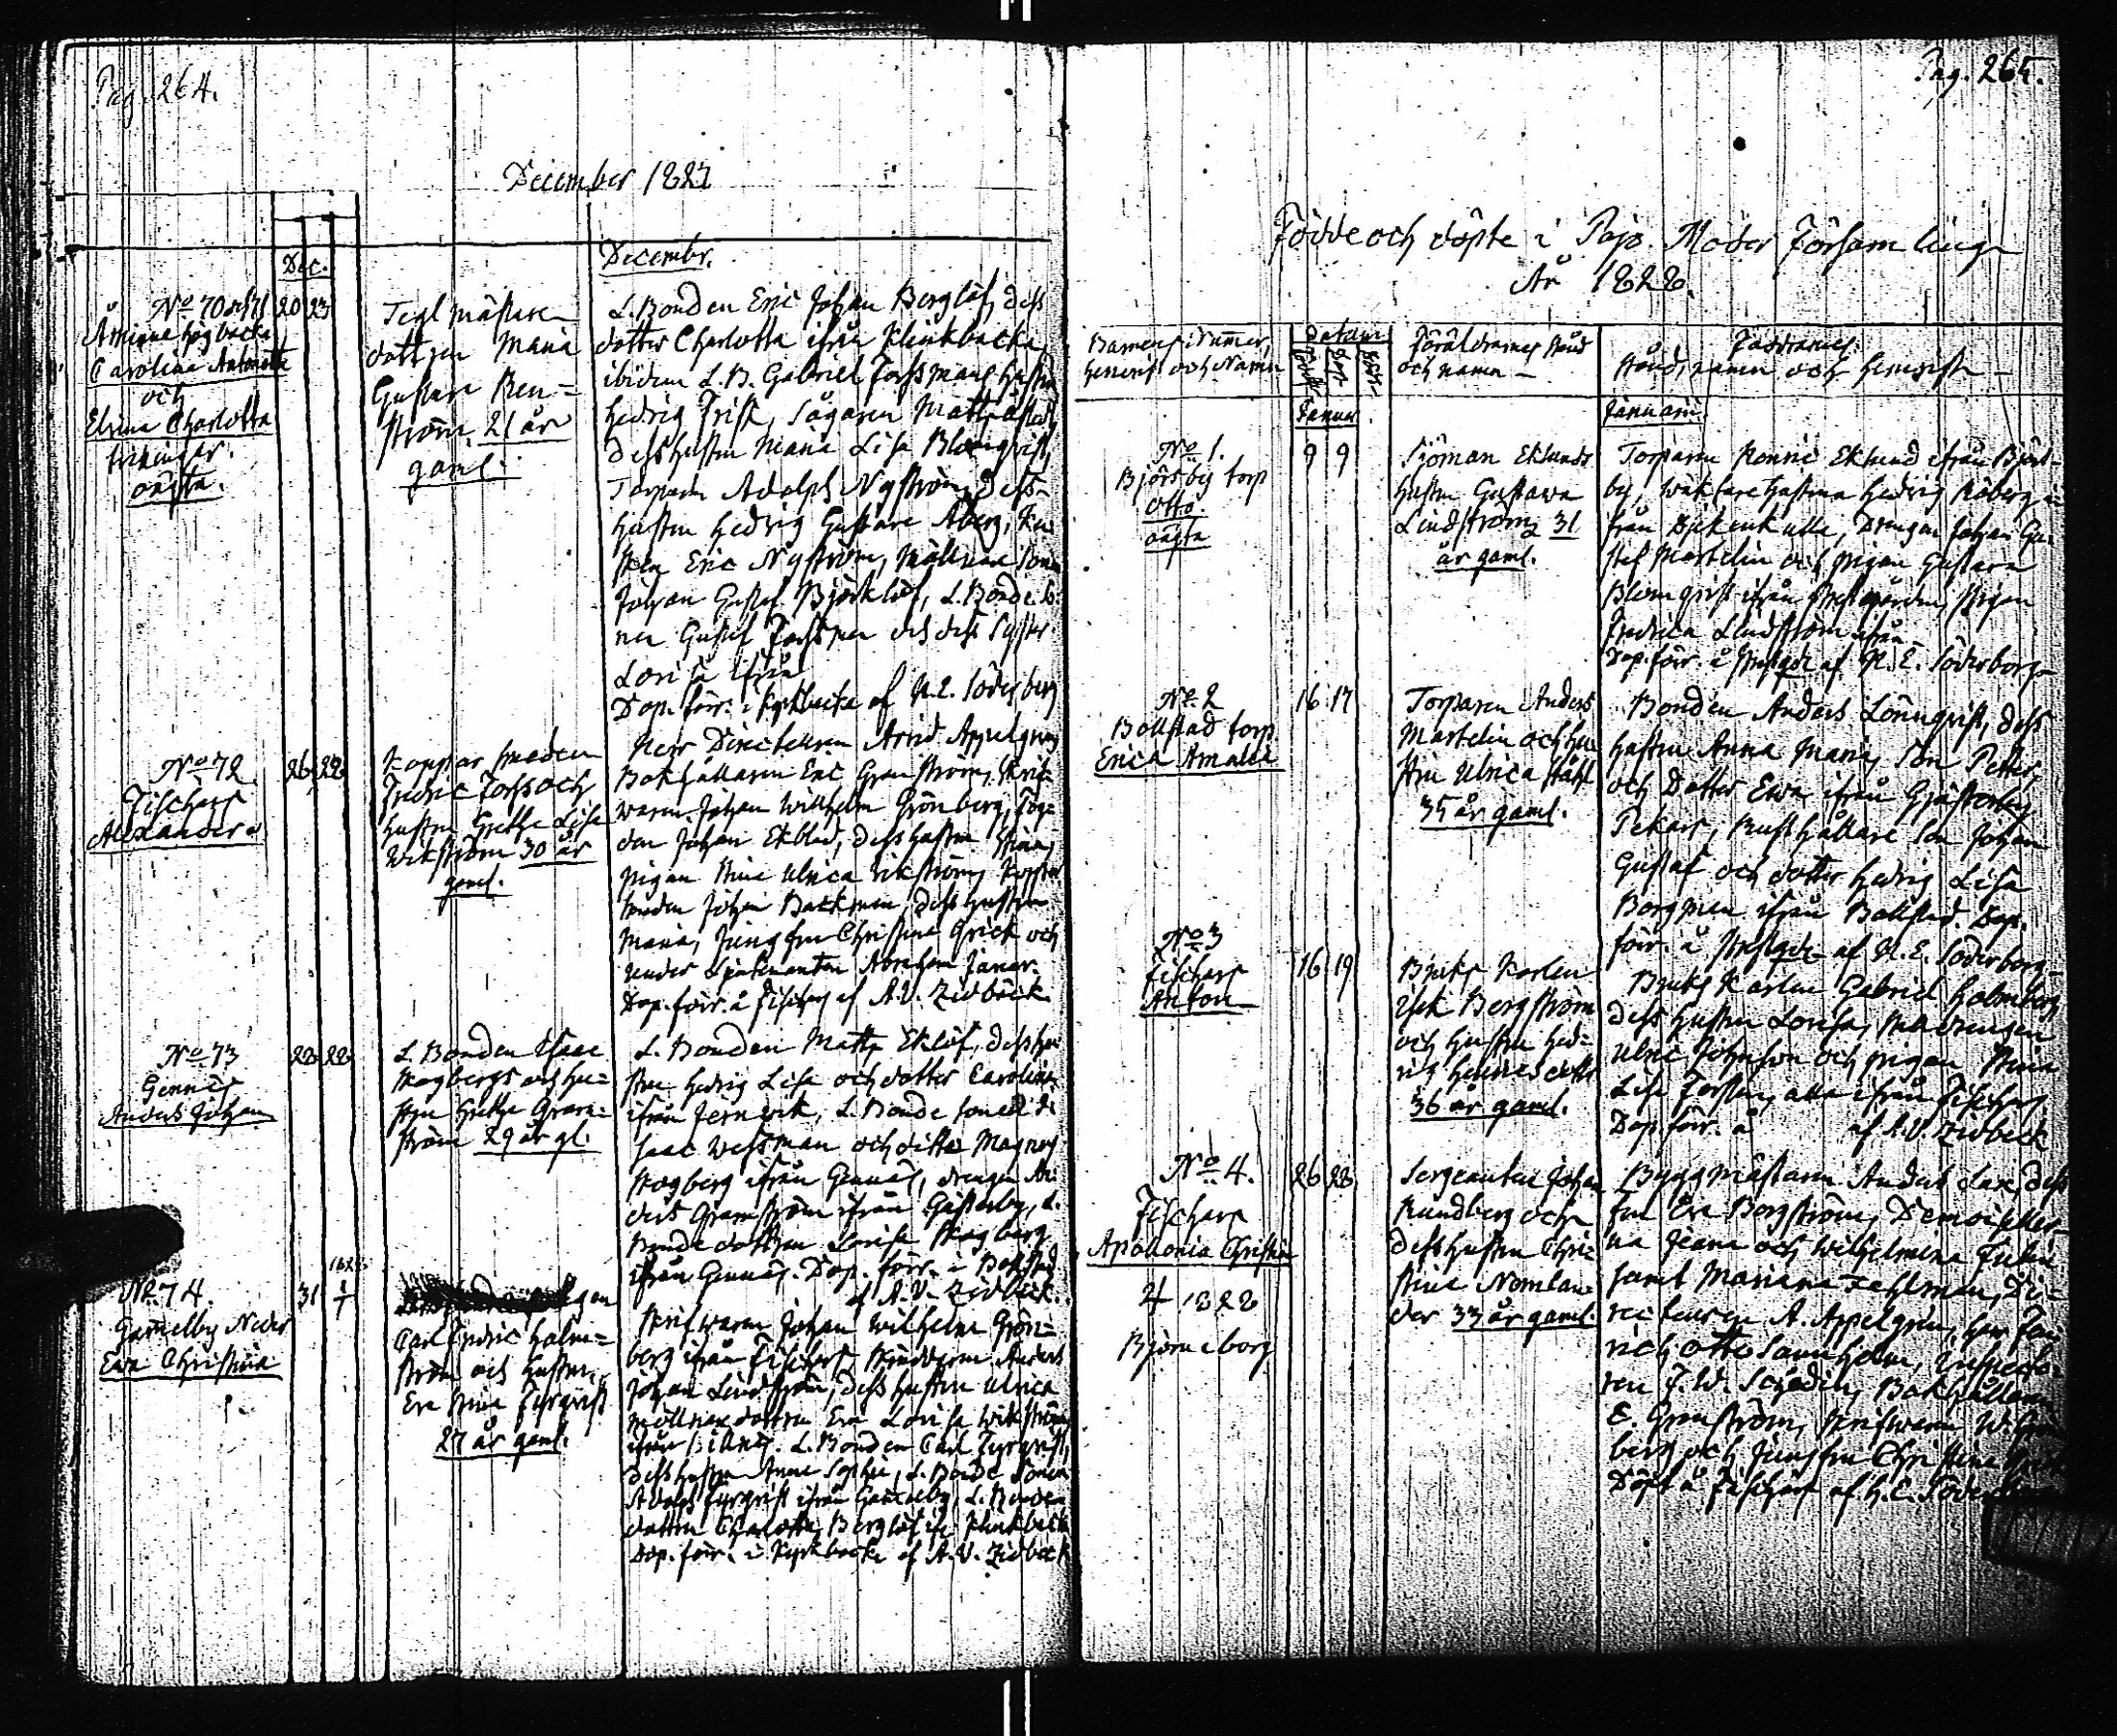 Pag. 264.
December 1827
Dec.
Decembr.
No 70 och 71 20 23
Åminne högbacka
Carolina Antonetta
och
Elvina Charlotta
tvillingar.
oägta.
Teglmästare
dottren Maria
Gustava Ren=
ström 21 år
gaml.
L. Bonden Eric Johan Berglöf, dess
dotter Charlotta ifrån Klinkbacka,
ibidem L. B. Gabriel Forssmans hustru
Hedvig Frisk, Sågaren Matts
dess hustru Maria Lisa Blomqvist,
Torparen Adolph Nyström, dess
hustru Hedvig Gustava Åberg,
Eric Nyström, Möllnare Sonen
Johan Gustaf Björklöf, L. Bonde So-
nen Gustaf Forssman och dess Syster
Lovisa ifrån
Dop. förr. i Kyrkbacka af N. E. Söderborg
No 72 26 28
Fischars
Alexander
Kopparsmeden
Fredric Forss och
hustru Gretha Lisa
Wikström 30 år
gaml.
Herr Directeuren Arvid Appelgren,
Bokhållaren Eric Granström, Skrif-
waren Johan Willhelm Grönberg,
Johan Ekblad, dess hustru Stina,
pigan Stina Ulrica Wikström, Koppar
smeden Johan Backman, dess hustru
Maria, Jungfru Christina Grick och
Under Lieutenanten Abraham
Dop. förr. å Fischars af A. V. Zidbäck.
No 73 28 28
Gennäs
Anders Johan
L. Bonden Isaac
Skogbergs och hu=
stru Gretha Gran=
ström 29 år gl.
L. Bonden Matts Eklöf, dess hu
stru Hedvig Lisa och dotter Carolina
ifrån Jernvik, L. Bonde sonen
Isaac Wessman och ditto Magnus
Skogberg ifrån Gennäs, drengen An-
ders Granström ifrån Gästerby, L.
Bonde dottren Lovisa Skogberg
ifrån Gennäs. Dop. förr. i Bollstad
af A. V. Zidbäck.
No 74. 31 1/1
Gammelby Neder
Ewa Christina
Carl Fredric Holm=
ström och hustru
Eva Stina Fyrqvist
27 år gaml.
Skrifwaren Johan Wilhelm Grön=
berg ifrån Fischars, Anders
Johan Lindström, dess hustru Ulrica
Möllnare dottren Eva Lovisa Wikström
ifrån Billnäs. L. Bonden Carl Fyrqvist,
dess hustru Anna Sophia, L. Bonde Sonen
Adolph Fyrqvist ifrån Gammelby, L. Bonde
dottren Charlotta Berglöf ifr. Klinkbacka
Dop. förr. i Kyrkbacka af A. V. Zidbäck
Pag. 265.
Födde och döpte i Pojo Moder Församling
År 1828.
Barnens Numer,
hemvist och Namn
Datum
Föräldrarnes stånd
och namn
Faddrarnes
stånd, namn och hemvist
Januar
Januari.
No 1. 9 9
Björsby torp
Otto.
oägta
Sjöman Eklunds
hustru Gustawa
Lindström 31
år gaml.
Torparen Eklund ifrån Björs-
by, hustrun Hedvig
från Drengen Johan Gu-
staf Martelin och pigan Gustava
Blomqvist ifrån Prestgården, pigan
Fredrica Lindström ifrån
Dop. förr. å Prestgdn af N. E. Söderborg
No 2 16 17
Bollstad torp.
Erica Amalia
Torparen Anders
Martelin och hu
stru Ulrica Ståhl
35 år gaml.
Bonden Anders Lönnqvist, dess
hustru Anna Maria, Son Petter,
och Dotter Ewa ifrån Gästerby
Pekars, Rusthållare Son Johan
Gustaf och dotter Hedvig Lisa
Borgman ifrån Bollstad. Dop.
förr. å Prestgdn af N. E. Söderborg
No 3 16 19
Fischars
Anton
Bruks Karlen
Isak Bergström
och hustru Hed=
vig Henricsdottr
36 år gaml.
Bruks Karlen Gabriel Holmberg
dess hustru Lovisa,
Ulric Johnsson och pigan Stina
Lisa Forsten, alla ifrån Fischars
Dop. förr. å af A. V. Zidbäck
No 4. 26 28
Fischars
Apollonia Christina
4 1828
Björneborg
Sergeanten Johan
Rundberg och
dess hustru Chri=
stina Nomlan=
der 33 år gaml.
Byggmästaren Anders Lax, dess
Fru Eva Bergström, Demoiseller
na Jeana och Wilhelmina Julin
samt Mariana Fehlman, Di=
recteuren A. Appelgren, Herr Fen
rich Otto Sannholm, Inspecto-
ren J. W. Schedin, Bokhållaren
E. Granström, Skrifwaren W. Grön
berg och Jungfru Christina Grick
Döpt å Fischars af N. E. Söderborg